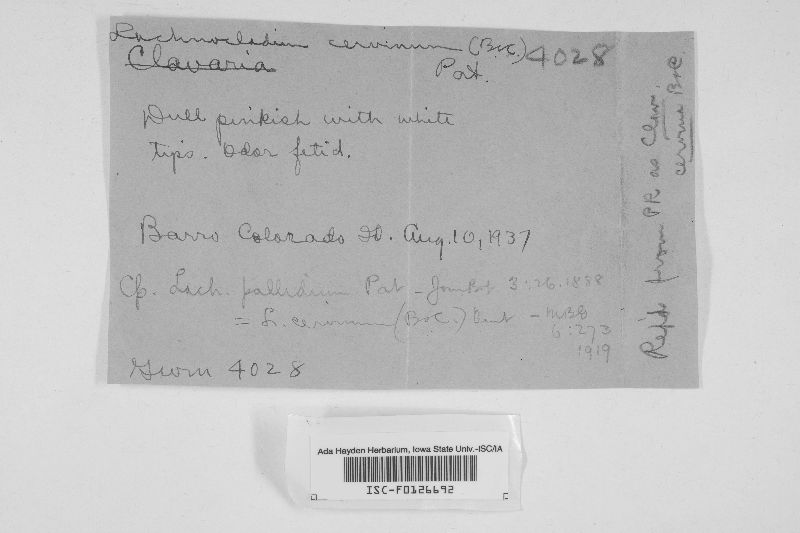 Lachnocladium cervinum (B&C) 4028
Clavaria Pat.
Dull pinkish with white
tips. Odor fetid.
Barro Colorado Id. Aug. 10, 1937
Cf. Lach. pallidum Pat - Jour Bot 3:26. 1888
= L. cervinum (B&C.) Burt - MBG
6:273
1919
GWM 4028
Rep'd from PR as Clav.
cervina B&C.
Ada Hayden Herbarium, Iowa State Univ.-ISC/IA
ISC-F0126692